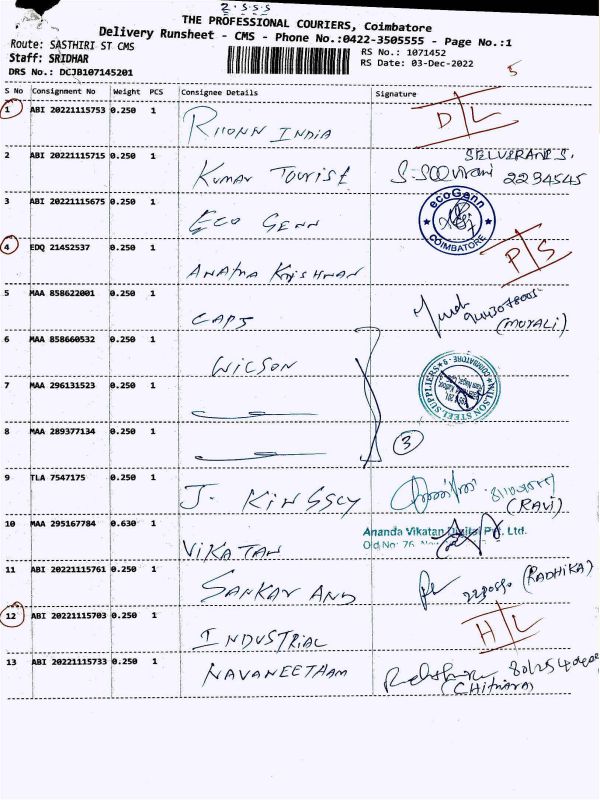 2.5.5.5
THE PROFESSIONAL COURIERS, Coimbatore
Delivery Runsheet - CMS - Phone No.:0422-3505555 - Page No.:1
Route: SASTHIRI ST CMS
RS No.: 1071452
Staff: SRIDHAR
RS Date: 03-Dec-2022
DRS No.: DCJB107145201
5
S No Consignment No Weight PCS Consignee Details Signature
1 ABI 20221115753 0.250 1 RHONN INDIA D/L
2 ABI 20221115715 0.250 1 KUMAR TOURIST SELVERANI S. 2234545
3 ABI 20221115675 0.250 1 ECO GENN ecoGenn COIMBATORE
4 EDQ 21452537 0.250 1 ANATHA KRISHNAN P/S
5 MAA 858622001 0.250 1 CAPS (MURALI)
6 MAA 858660532 0.250 1 WILSON WILSON STEEL SUPPLIERS COIMBATORE - 9
7 MAA 296131523 0.250 1
8 MAA 289377134 0.250 1 3
9 TLA 7547175 0.250 1 J. KINGSLY (RAVI)
10 MAA 295167784 0.630 1 VIKATAN Ananda Vikatan Digital Pvt. Ltd.
Old No: 76,
11 ABI 20221115761 0.250 1 SANKAR AND (RADHIKA)
12 ABI 20221115703 0.250 1 INDUSTRIAL H/L
13 ABI 20221115733 0.250 1 NAVANEETHAM (CHITHARA)